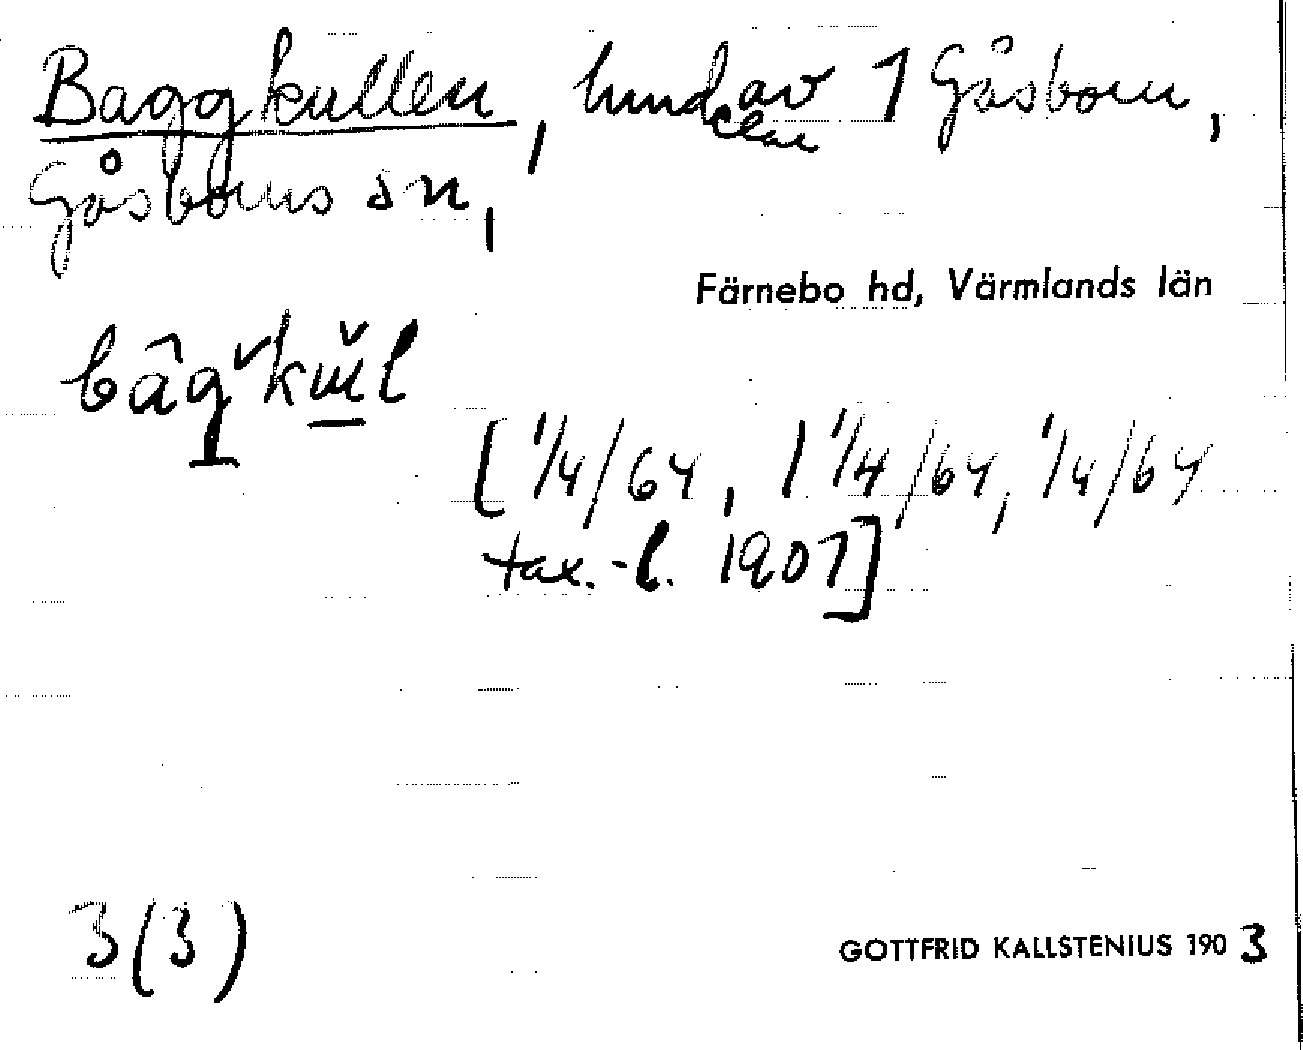 Baggkullen, av 1 Gåsborn,
Gåsborns sn,
Färnebo hd, Värmlands län
[1/4/64, 1 1/4/64, 1/4/64
tax.-l. 1907]
3(3)
GOTTFRID KALLSTENIUS 1903